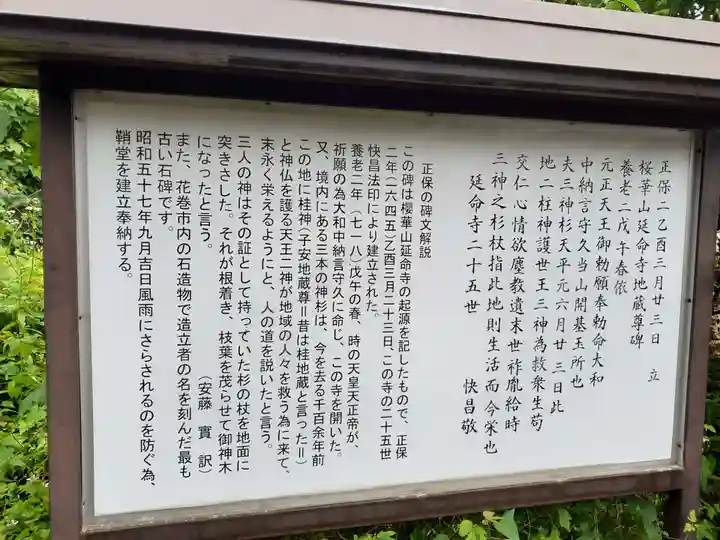 正保二乙酉三月廿三日　立
桜華山延命寺地蔵尊碑
養老二戊午春依
元正天王御勅願奉勅命大和
中納言守久当山開基玉所也
夫三神杉天平元六月廿三日此
地二柱神護世王三神為救衆生苟
交仁心情欲塵教遺末世祚胤給時
三神之杉杖指此地則生活而今栄也
延命寺二十五世　快昌敬
正保の碑文解説
この碑は櫻華山延命寺の起源を記したもので、正保
二年（一六四五）乙酉三月二十三日、この寺の二十五世
快昌法印により建立された。
養老二年（七一八）戊午の春、時の天皇天正帝が、
祈願の為大和中納言守久に命じ、この寺を開いた。
又、境内にある三本の神杉は、今を去る千百余年前
この地に桂神（子安地蔵尊＝昔は桂地蔵と言った＝）
と神仏を護る天王二神が地域の人々を救う為に来て、
末永く栄えるようにと、人の道を説いたと言う。
三人の神はその証として持っていた杉の杖を地面に
突きさした。それが根着き、枝葉を茂らせて御神木
になったと言う。　（安藤　實　訳）
また、花巻市内の石造物で造立者の名を刻んだ最も
古い石碑です。
昭和五十七年九月吉日風雨にさらされるのを防ぐ為、
鞘堂を建立奉納する。